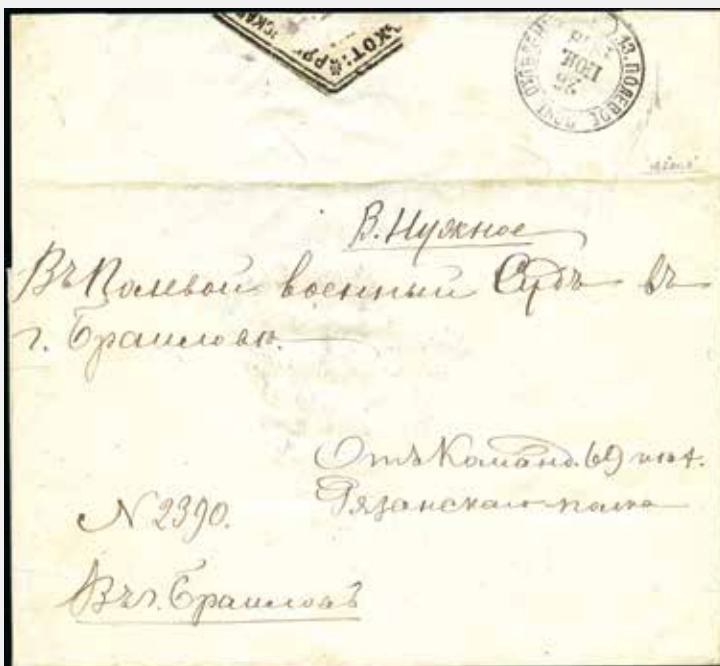 13. ПОЛЕВОЕ ПОЧ. ОТДѢЛЕН
26
ІЮН.
В. Нужное
Въ Полевой военный Судъ въ
г. Браиловѣ.
Отъ Команд. 69 пѣх.
Рязанскаго полка
N 2390.
Въ г. Браиловъ